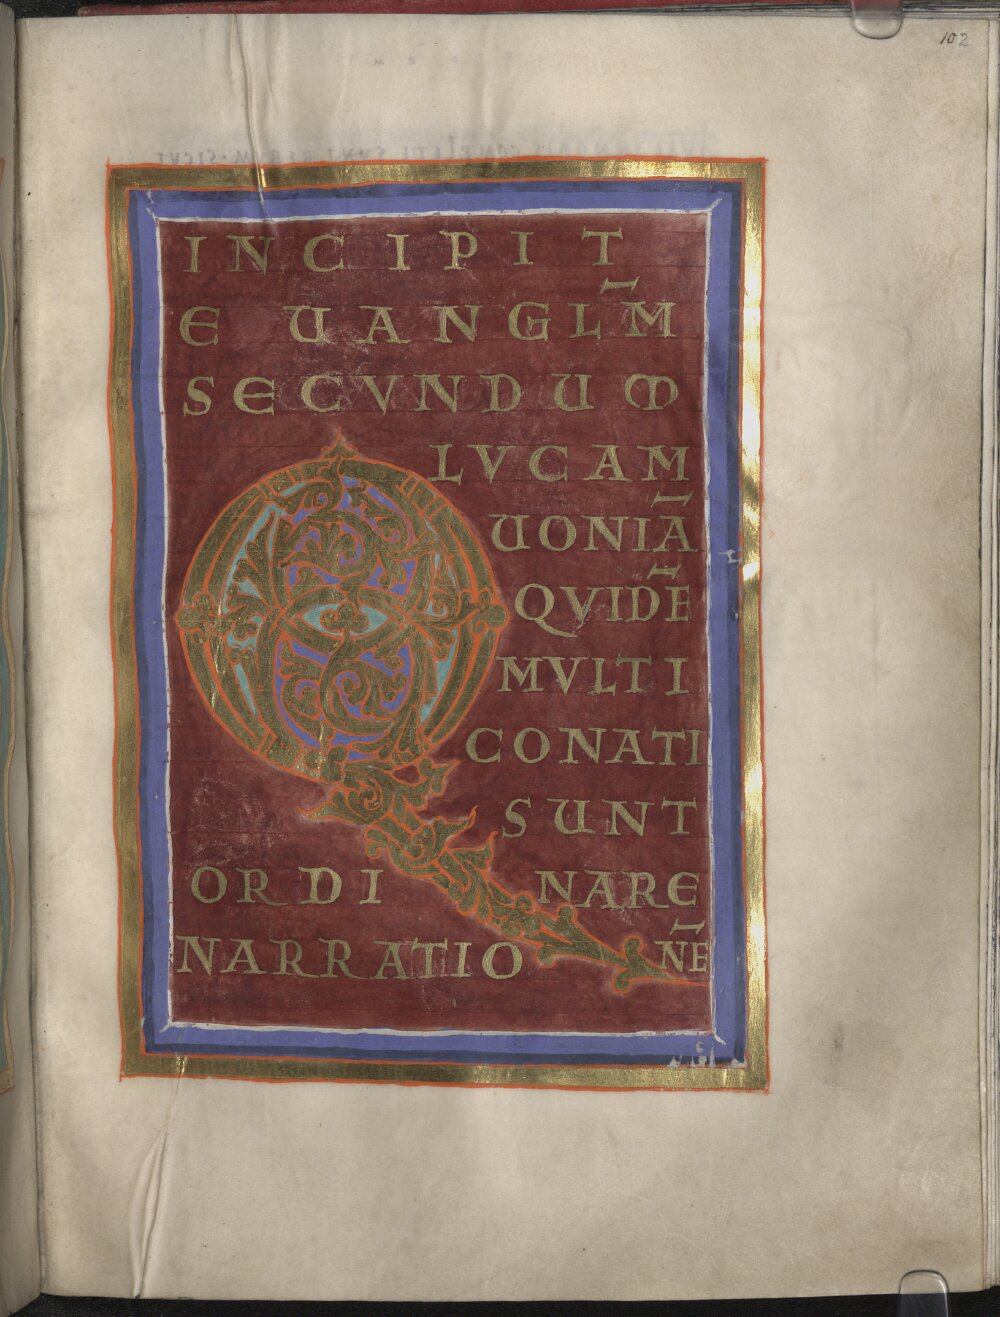 102
INCIPIT
EUANGL̅M
SECVNDUM
LVCAM
QUONIA̅
QVIDE̅
MVLTI
CONATI
SUNT
ORDINARE
NARRATIONE̅